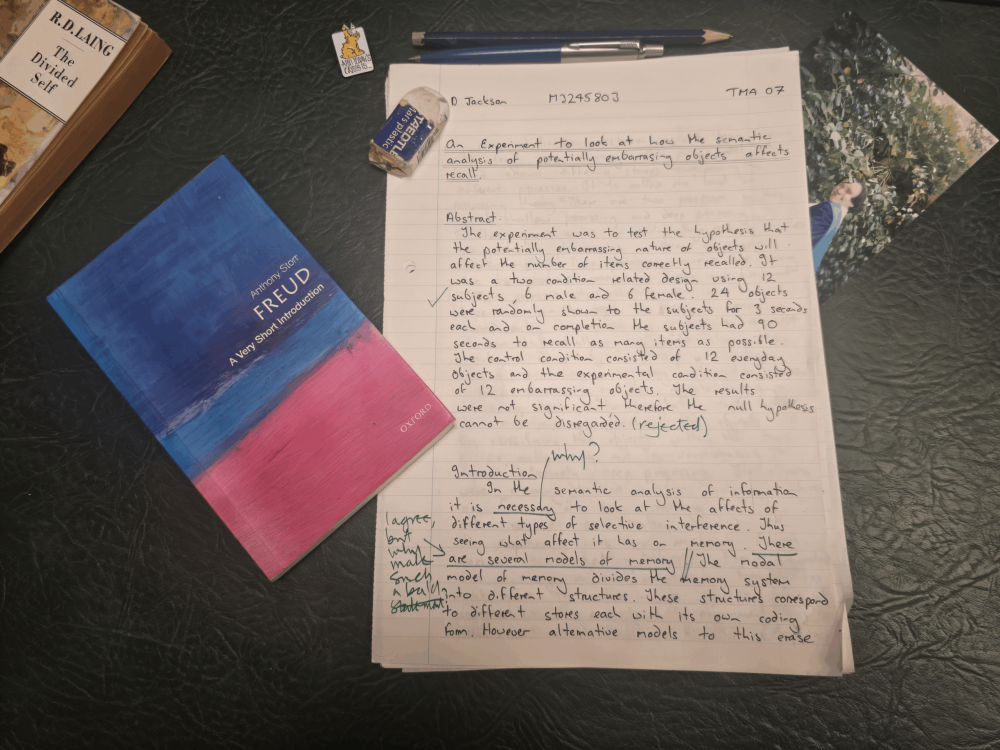 R.D.LAING
The
Divided
Self
Anthony Storr
FREUD
A Very Short Introduction
OXFORD
STAEDTLER
Mars plastic
D Jackson MJ245803 TMA 07
An Experiment to look at how the semantic
analysis of potentially embarrasing objects affects
recall.
Abstract.
The experiment was to test the hypothesis that
the potentially embarrassing nature of objects will
affect the number of items correctly recalled. It
was a two condition related design using 12
subjects, 6 male and 6 female. 24 objects
were randomly shown to the subjects for 3 seconds
each and on completion the subjects had 90
seconds to recall as many items as possible.
The control condition consisted of 12 everyday
objects and the experimental condition consisted
of 12 embarrassing objects. The results
were not significant therefore the null hypothesis
cannot be disregarded. (rejected)
why?
Introduction
In the semantic analysis of information
it is necessary to look at the affects of
different types of selective interference. Thus
seeing what affect it has on memory. There
are several models of memory. The modal
model of memory divides the memory system
into different structures. These structures correspond
to different stores each with its own coding
form. However alternative models to this erase
I agree,
but
why
make
such
a bald
statement